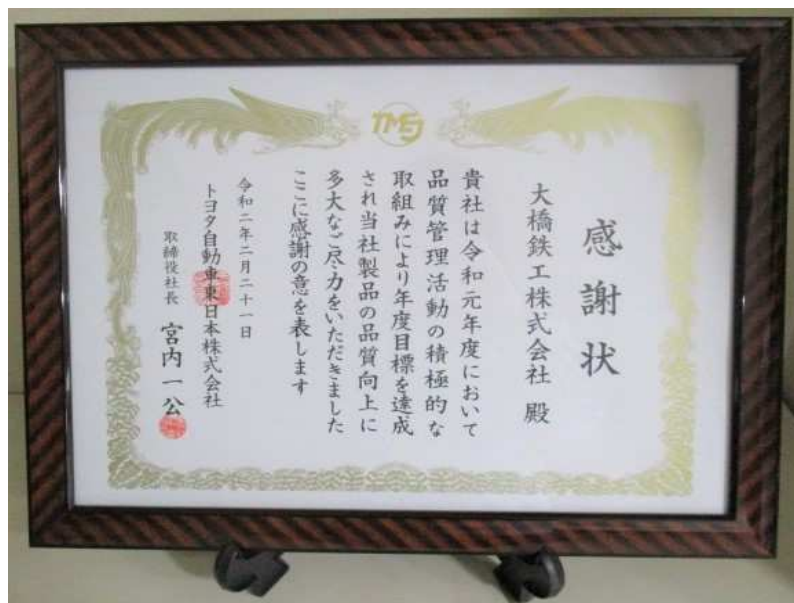 TMEJ
感謝状
大橋鉄工株式会社 殿
貴社は令和元年度において
品質管理活動の積極的な
取組みにより年度目標を達成
され当社製品の品質向上に
多大なご尽力をいただきました
ここに感謝の意を表します
令和二年二月二十一日
トヨタ自動車東日本株式会社
取締役社長 宮内一公